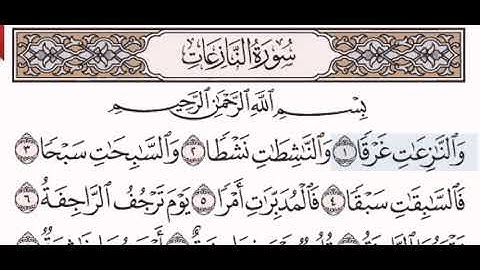 سُورَةُ النَّازِعَاتِ
بِسْمِ ٱللَّهِ ٱلرَّحْمَٰنِ ٱلرَّحِيمِ
وَٱلنَّٰزِعَٰتِ غَرْقًا ١ وَٱلنَّٰشِطَٰتِ نَشْطًا ٢ وَٱلسَّٰبِحَٰتِ سَبْحًا ٣
فَٱلسَّٰبِقَٰتِ سَبْقًا ٤ فَٱلْمُدَبِّرَٰتِ أَمْرًا ٥ يَوْمَ تَرْجُفُ ٱلرَّاجِفَةُ ٦